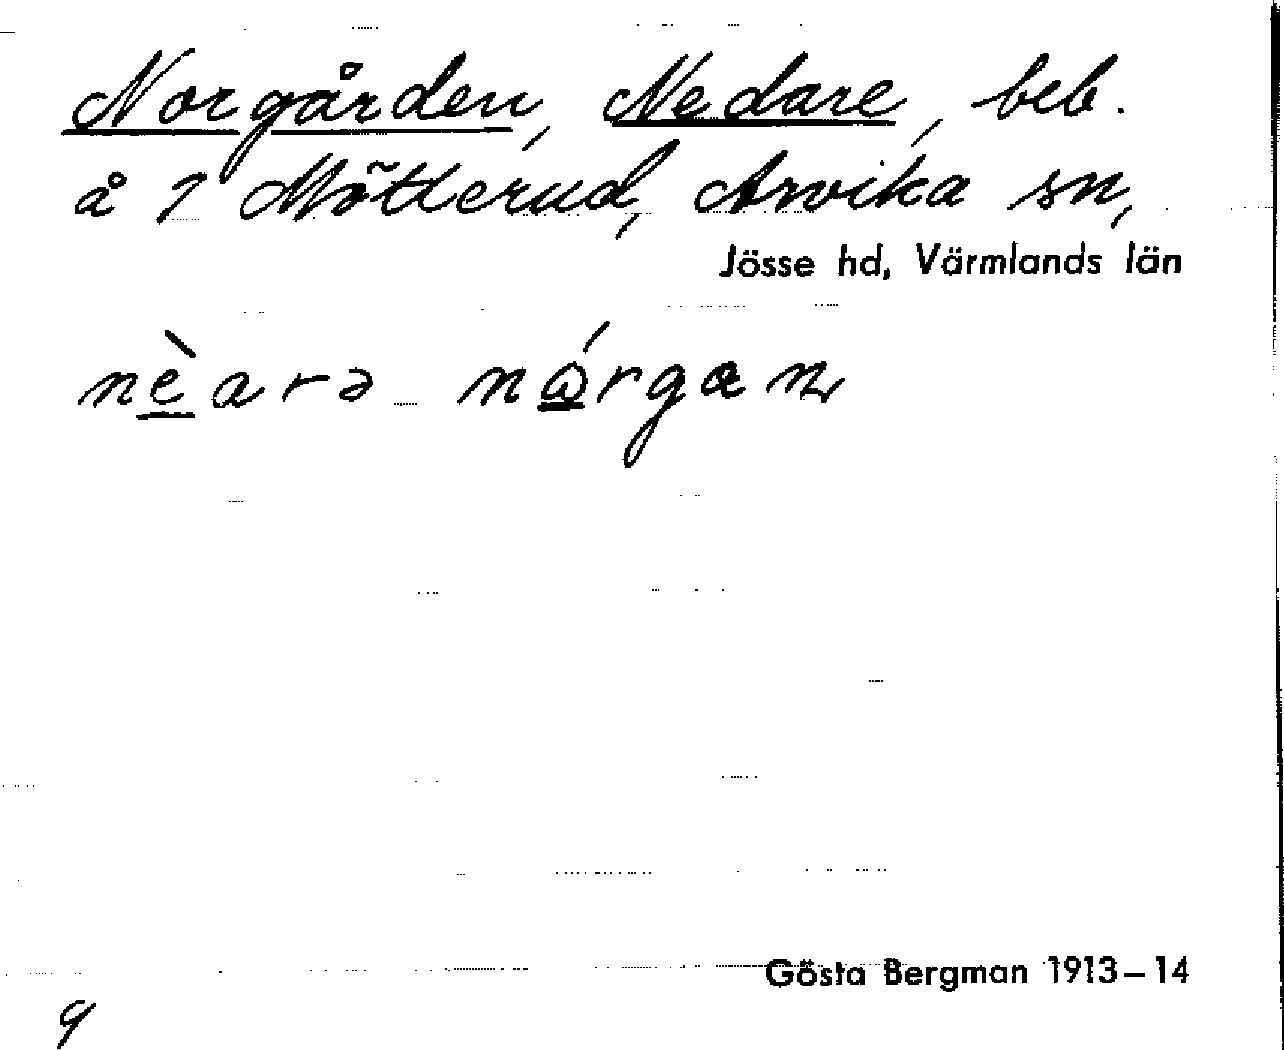 Norgården, Nedare, beb.
å 1 Mötterud, Arvika sn,
Jösse hd, Värmlands län
nèarə nǫ́rgan
Gösta Bergman 1913–14
9